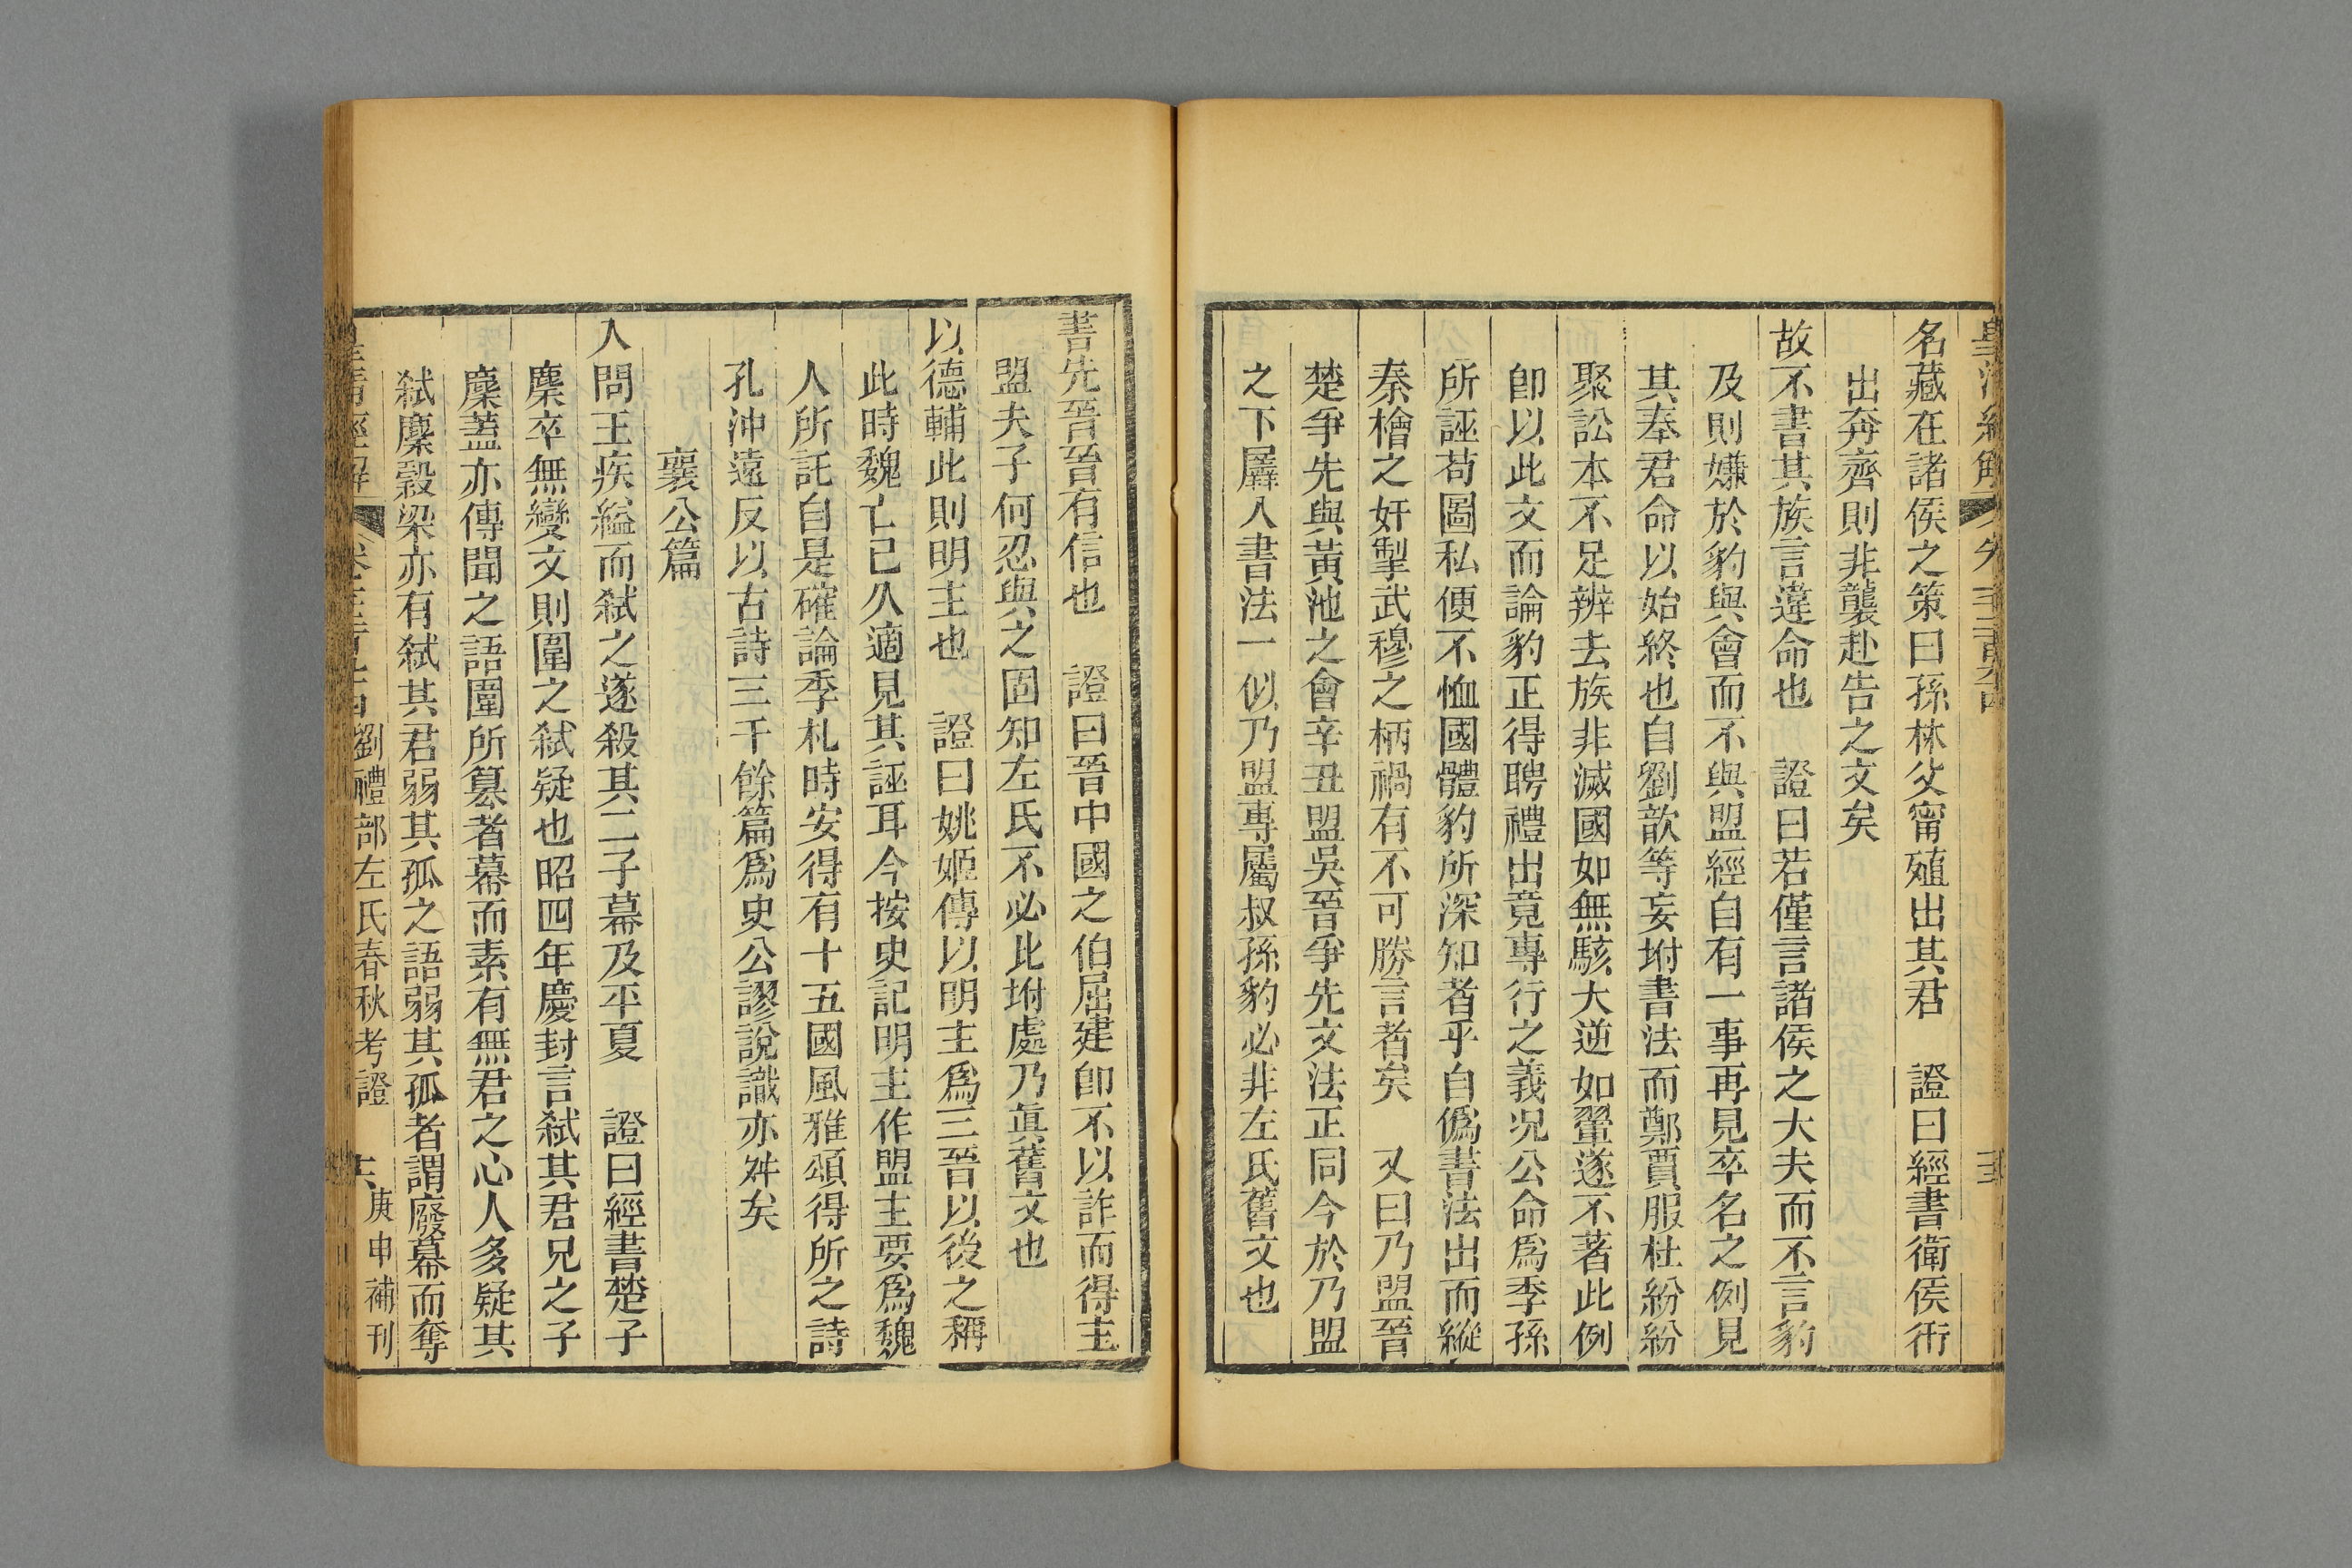 名藏在諸侯之策曰孫林父甯殖出其君　證曰經書衛侯衎
出奔齊則非襲赴告之文矣
故不書其族言違命也　證曰若僅言諸侯之大夫而不言豹
及則嫌於豹與會而不與盟經自有一事再見卒名之例見
其奉君命以始終也自劉歆等妄坿書法而鄭賈服杜紛紛
聚訟本不足辨去族非滅國如無駭大逆如翬遂不著此例
卽以此文而論豹正得聘禮出竟專行之義況公命爲季孫
所誣苟圖私便不恤國體豹所深知者乎自僞書法出而縱
秦檜之奸掣武穆之柄禍有不可勝言者矣　又曰乃盟晉
楚爭先與黃池之會辛丑盟吳晉爭先文法正同今於乃盟
之下羼入書法一似乃盟專屬叔孫豹必非左氏舊文也
書先晉晉有信也　證曰晉中國之伯屈建卽不以詐而得主
盟夫子何忍與之固知左氏不必比坿處乃眞舊文也
以德輔此則明主也　證曰姚姬傳以明主爲三晉以後之稱
此時魏亡已久適見其誣耳今按史記明主作盟主要爲魏
人所託自是確論季札時安得有十五國風雅頌得所之詩
孔沖遠反以古詩三千餘篇爲史公謬說識亦舛矣
襄公篇
入問王疾縊而弒之遂殺其二子幕及平夏　證曰經書楚子
麇卒無變文則圍之弒疑也昭四年慶封言弒其君兄之子
麇蓋亦傳聞之語圍所篡者幕而素有無君之心人多疑其
弒麇穀梁亦有弒其君弱其孤之語弱其孤者謂廢幕而奪
劉禮部左氏春秋考證
庚申補刊